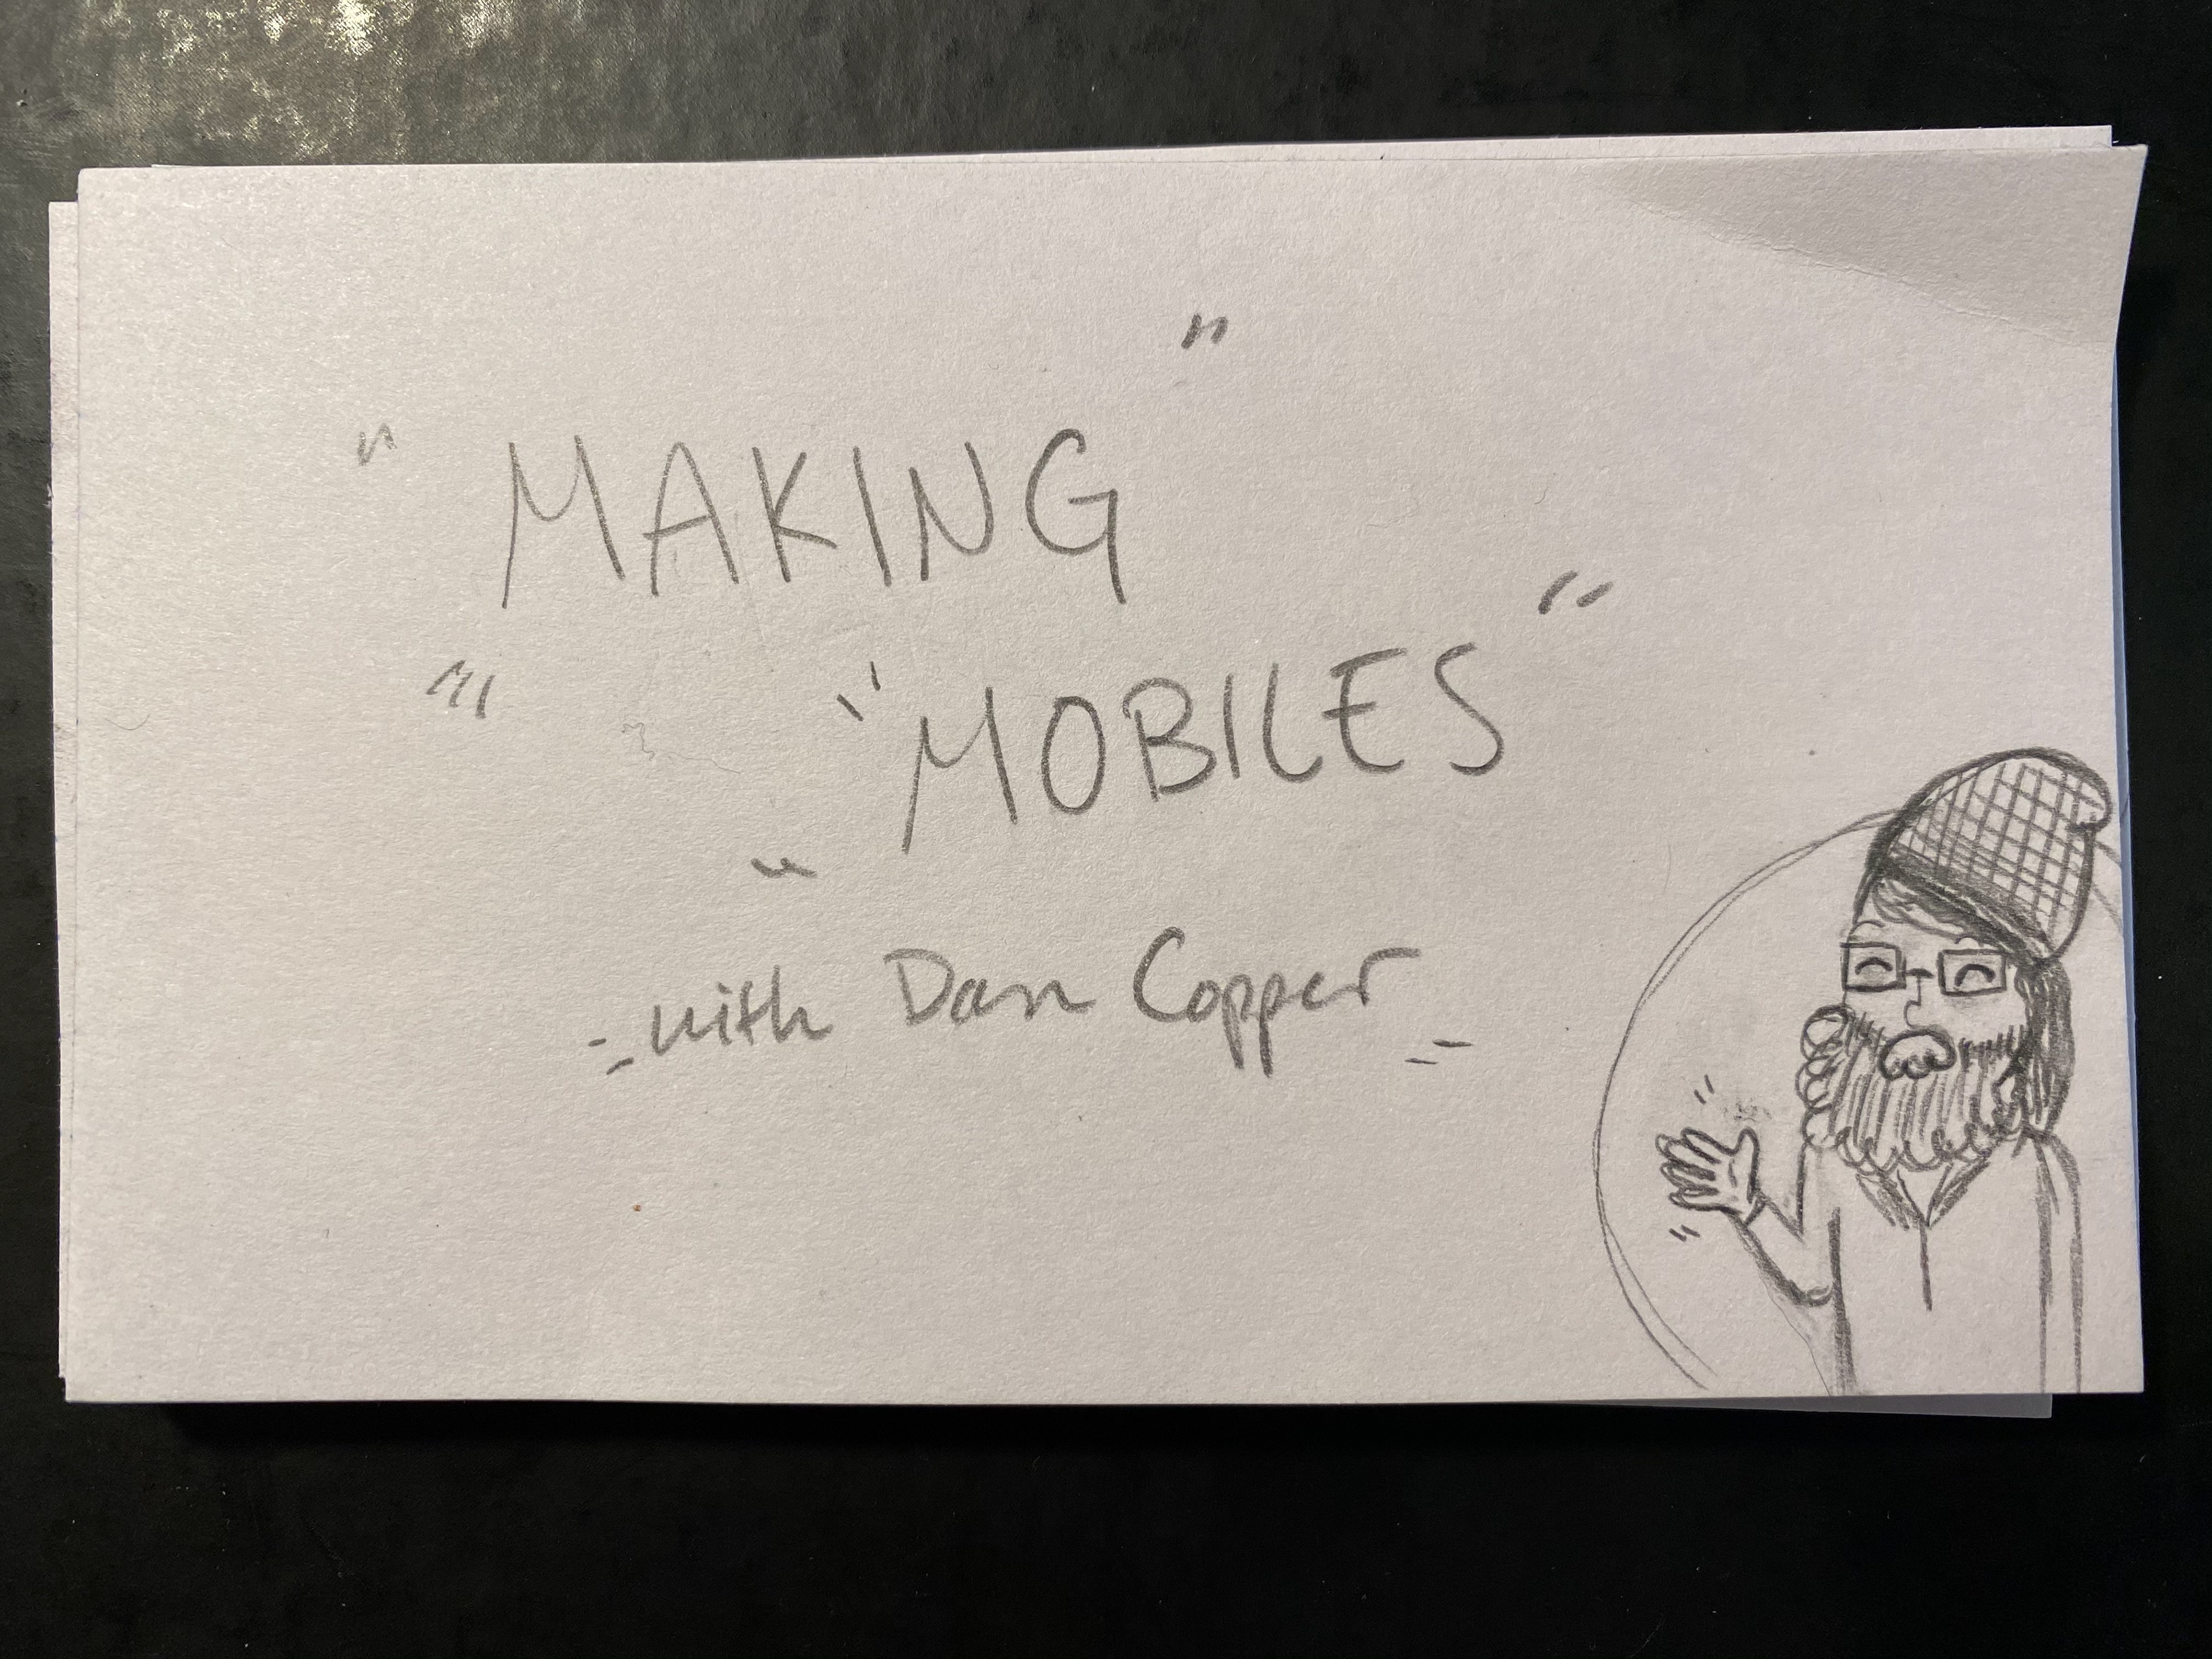 MAKING
MOBILES
with Dan Copper